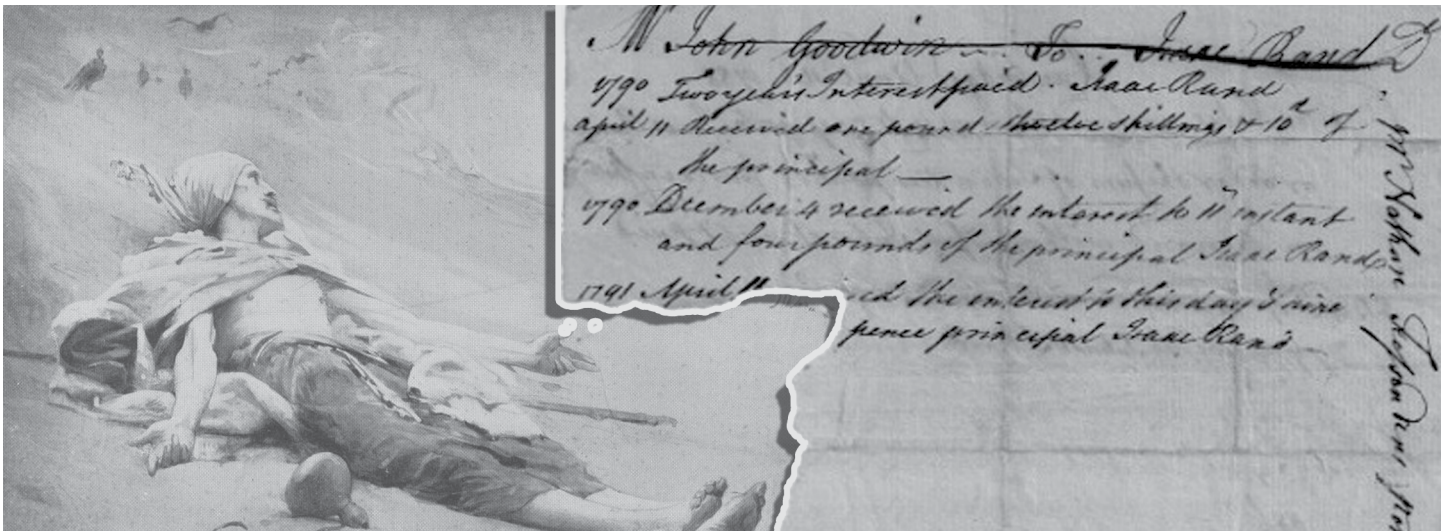 Mr John Goodwin To Isaac Rand Dr
1790 Two years Interest paid. Isaac Rand
April 11 Received one pound twelve shillings & 10d of
the principal —
1790 Dcember 4 received the interest to 11th instant
and four pounds of the principal Isaac Rand
1791 April 11 ed the interest to this day & nine
pence principal Isaac Rand
Mr Nathane